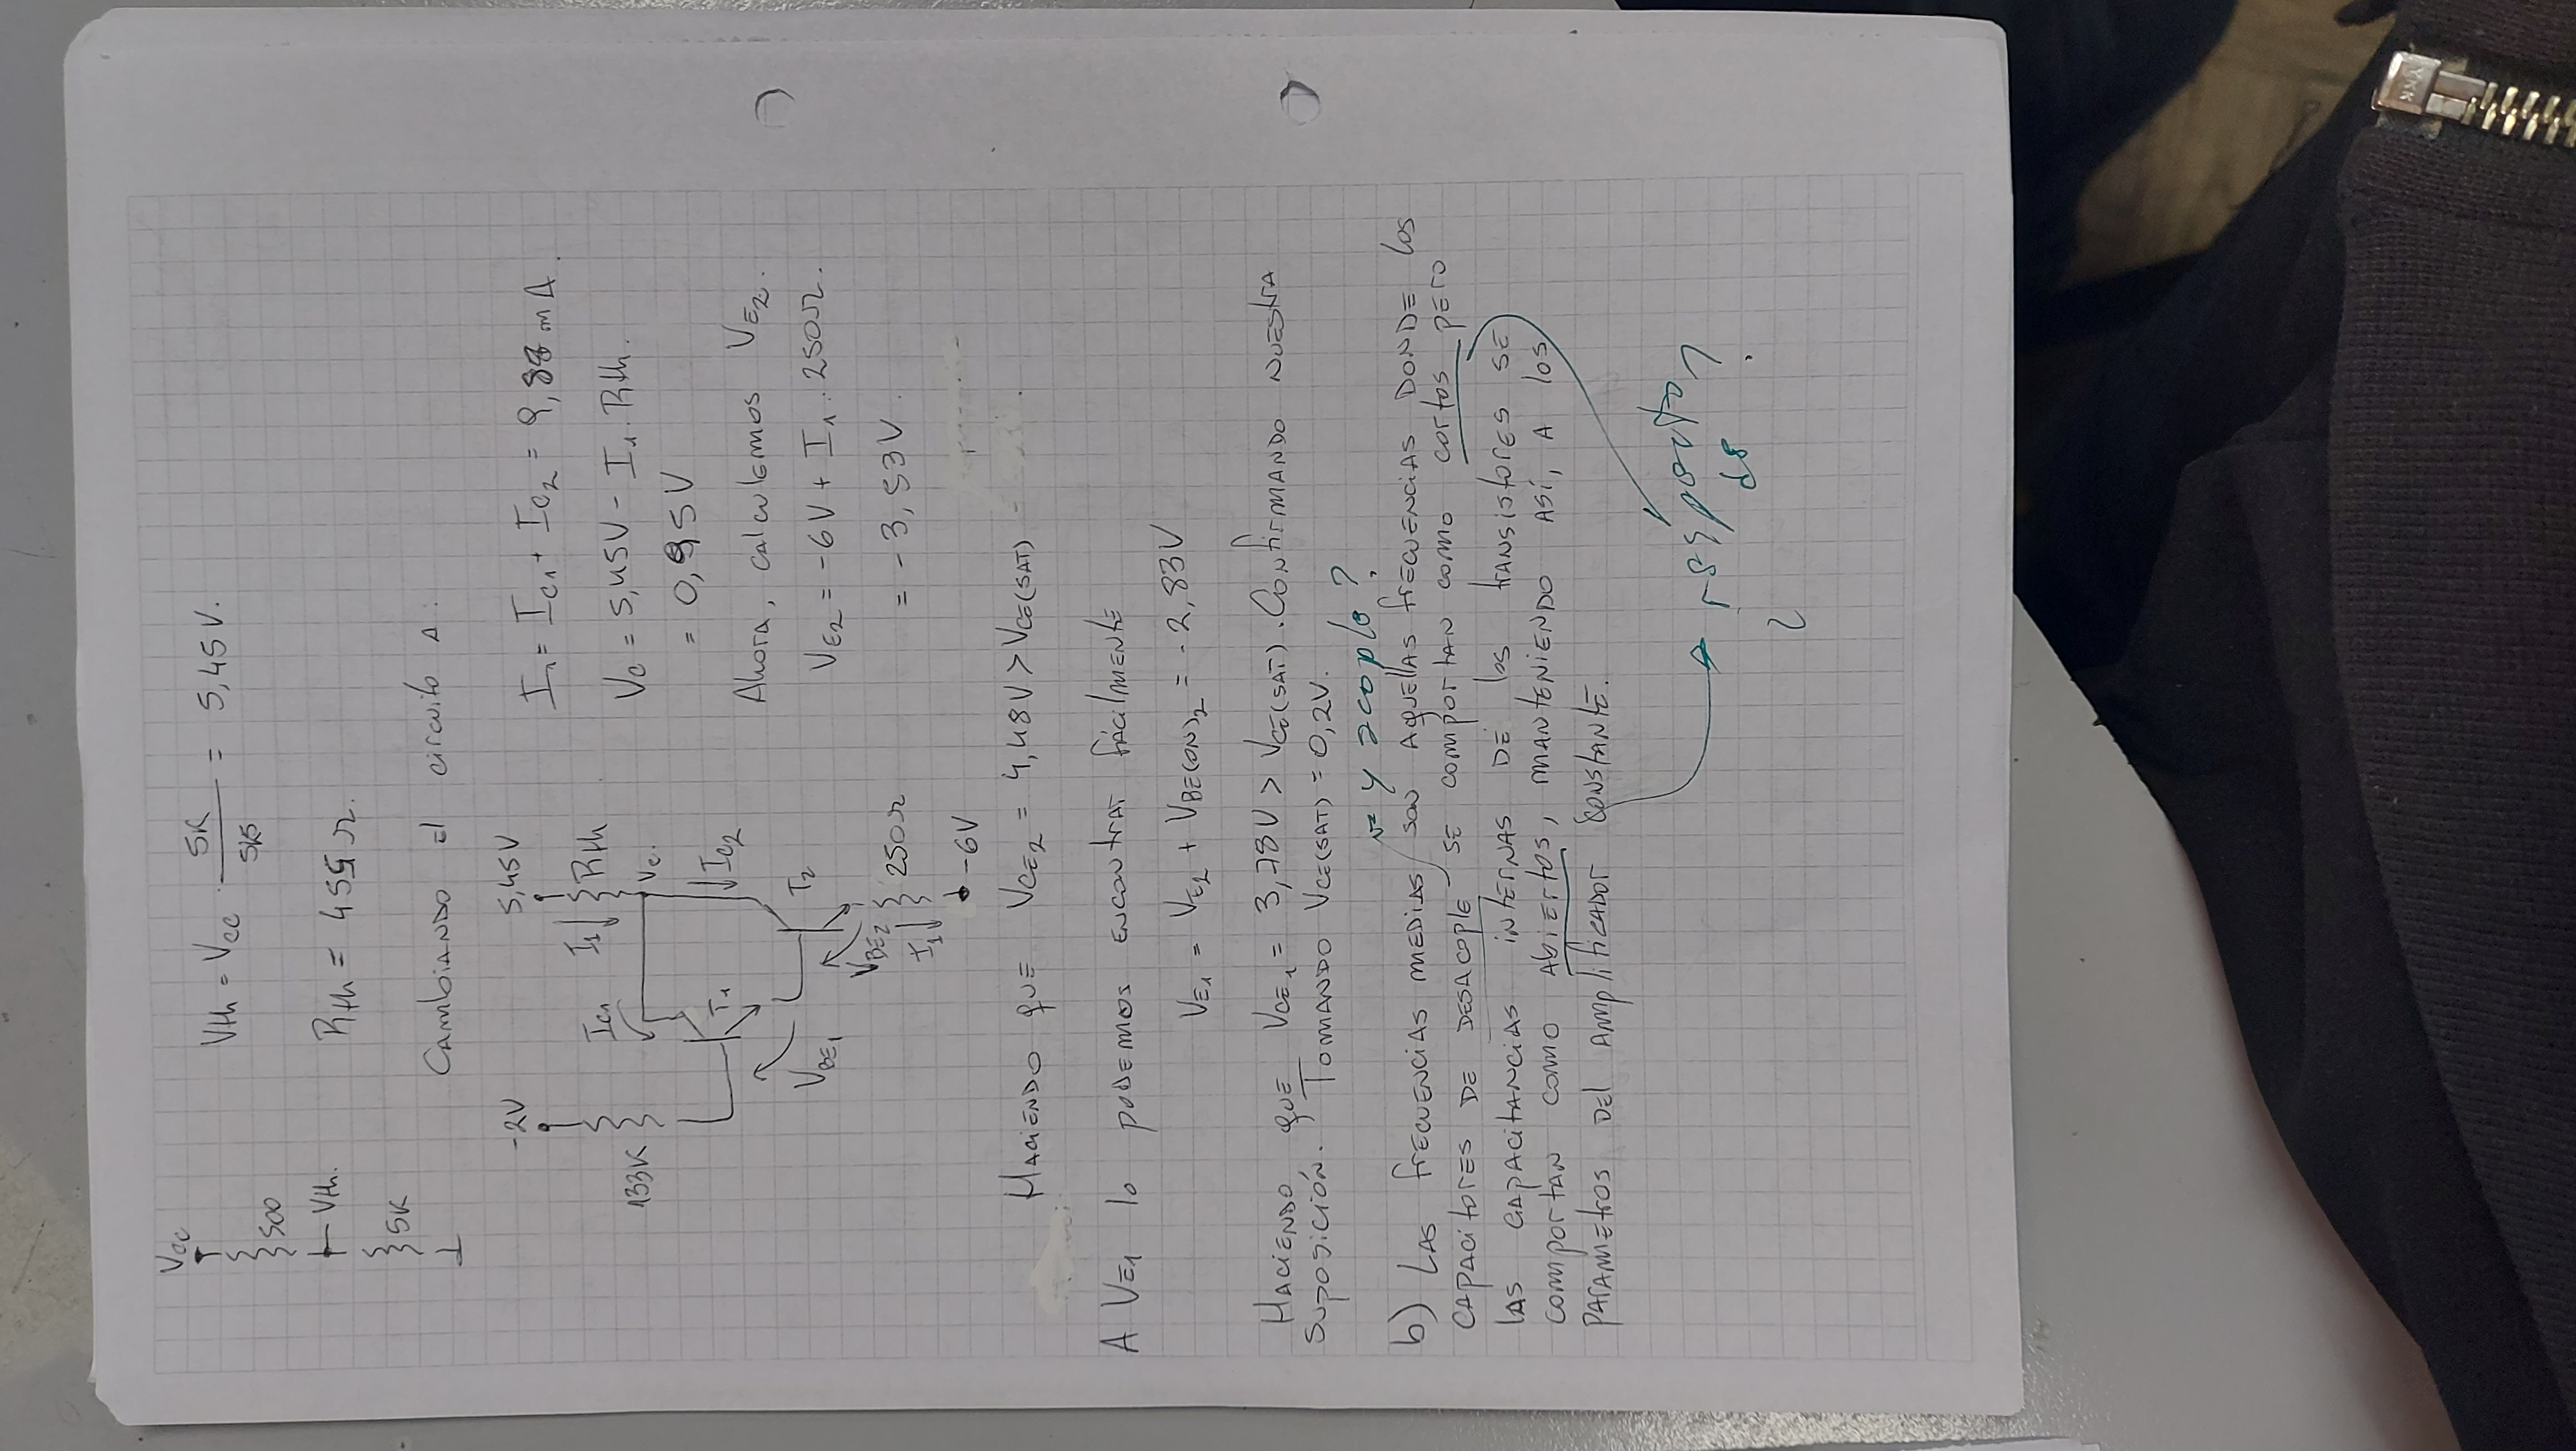 Vcc
500
Vth.
5K
Vth = Vcc . 5K / 5k5 = 5,45 V.
Rth = 455 Ω.
Cambiando el circuito a:
-2V
5,45V
133K
Ic1
I1
Rth
Vc.
T1
Ic2
VBE1
T2
VBE2
250Ω
I1
-6V
I1 = Ic1 + Ic2 = 9,88 mA.
Vc = 5,45V - I1 . Rth.
= 0,95V
Ahora, calculemos VE2.
VE2 = -6V + I1 . 250Ω.
= -3,53V.
Haciendo que VCE2 = 4,48V > VCE(SAT)
A VE1 lo podemos encontrar fácilmente
VE1 = VE2 + VBE(ON)2 = -2,83V
Haciendo, que VCE1 = 3,78V > VCE(SAT). Confirmando nuestra
suposición. Tomando VCE(SAT) = 0,2V.
y acople?
b) Las frecuencias medias son aquellas frecuencias donde los
capacitores de desacople se comportan como cortos pero
las capacitancias internas de los transistores se
comportan como abiertos, manteniendo así, a los
parametros del amplificador constante.
¿ respecto
de ?